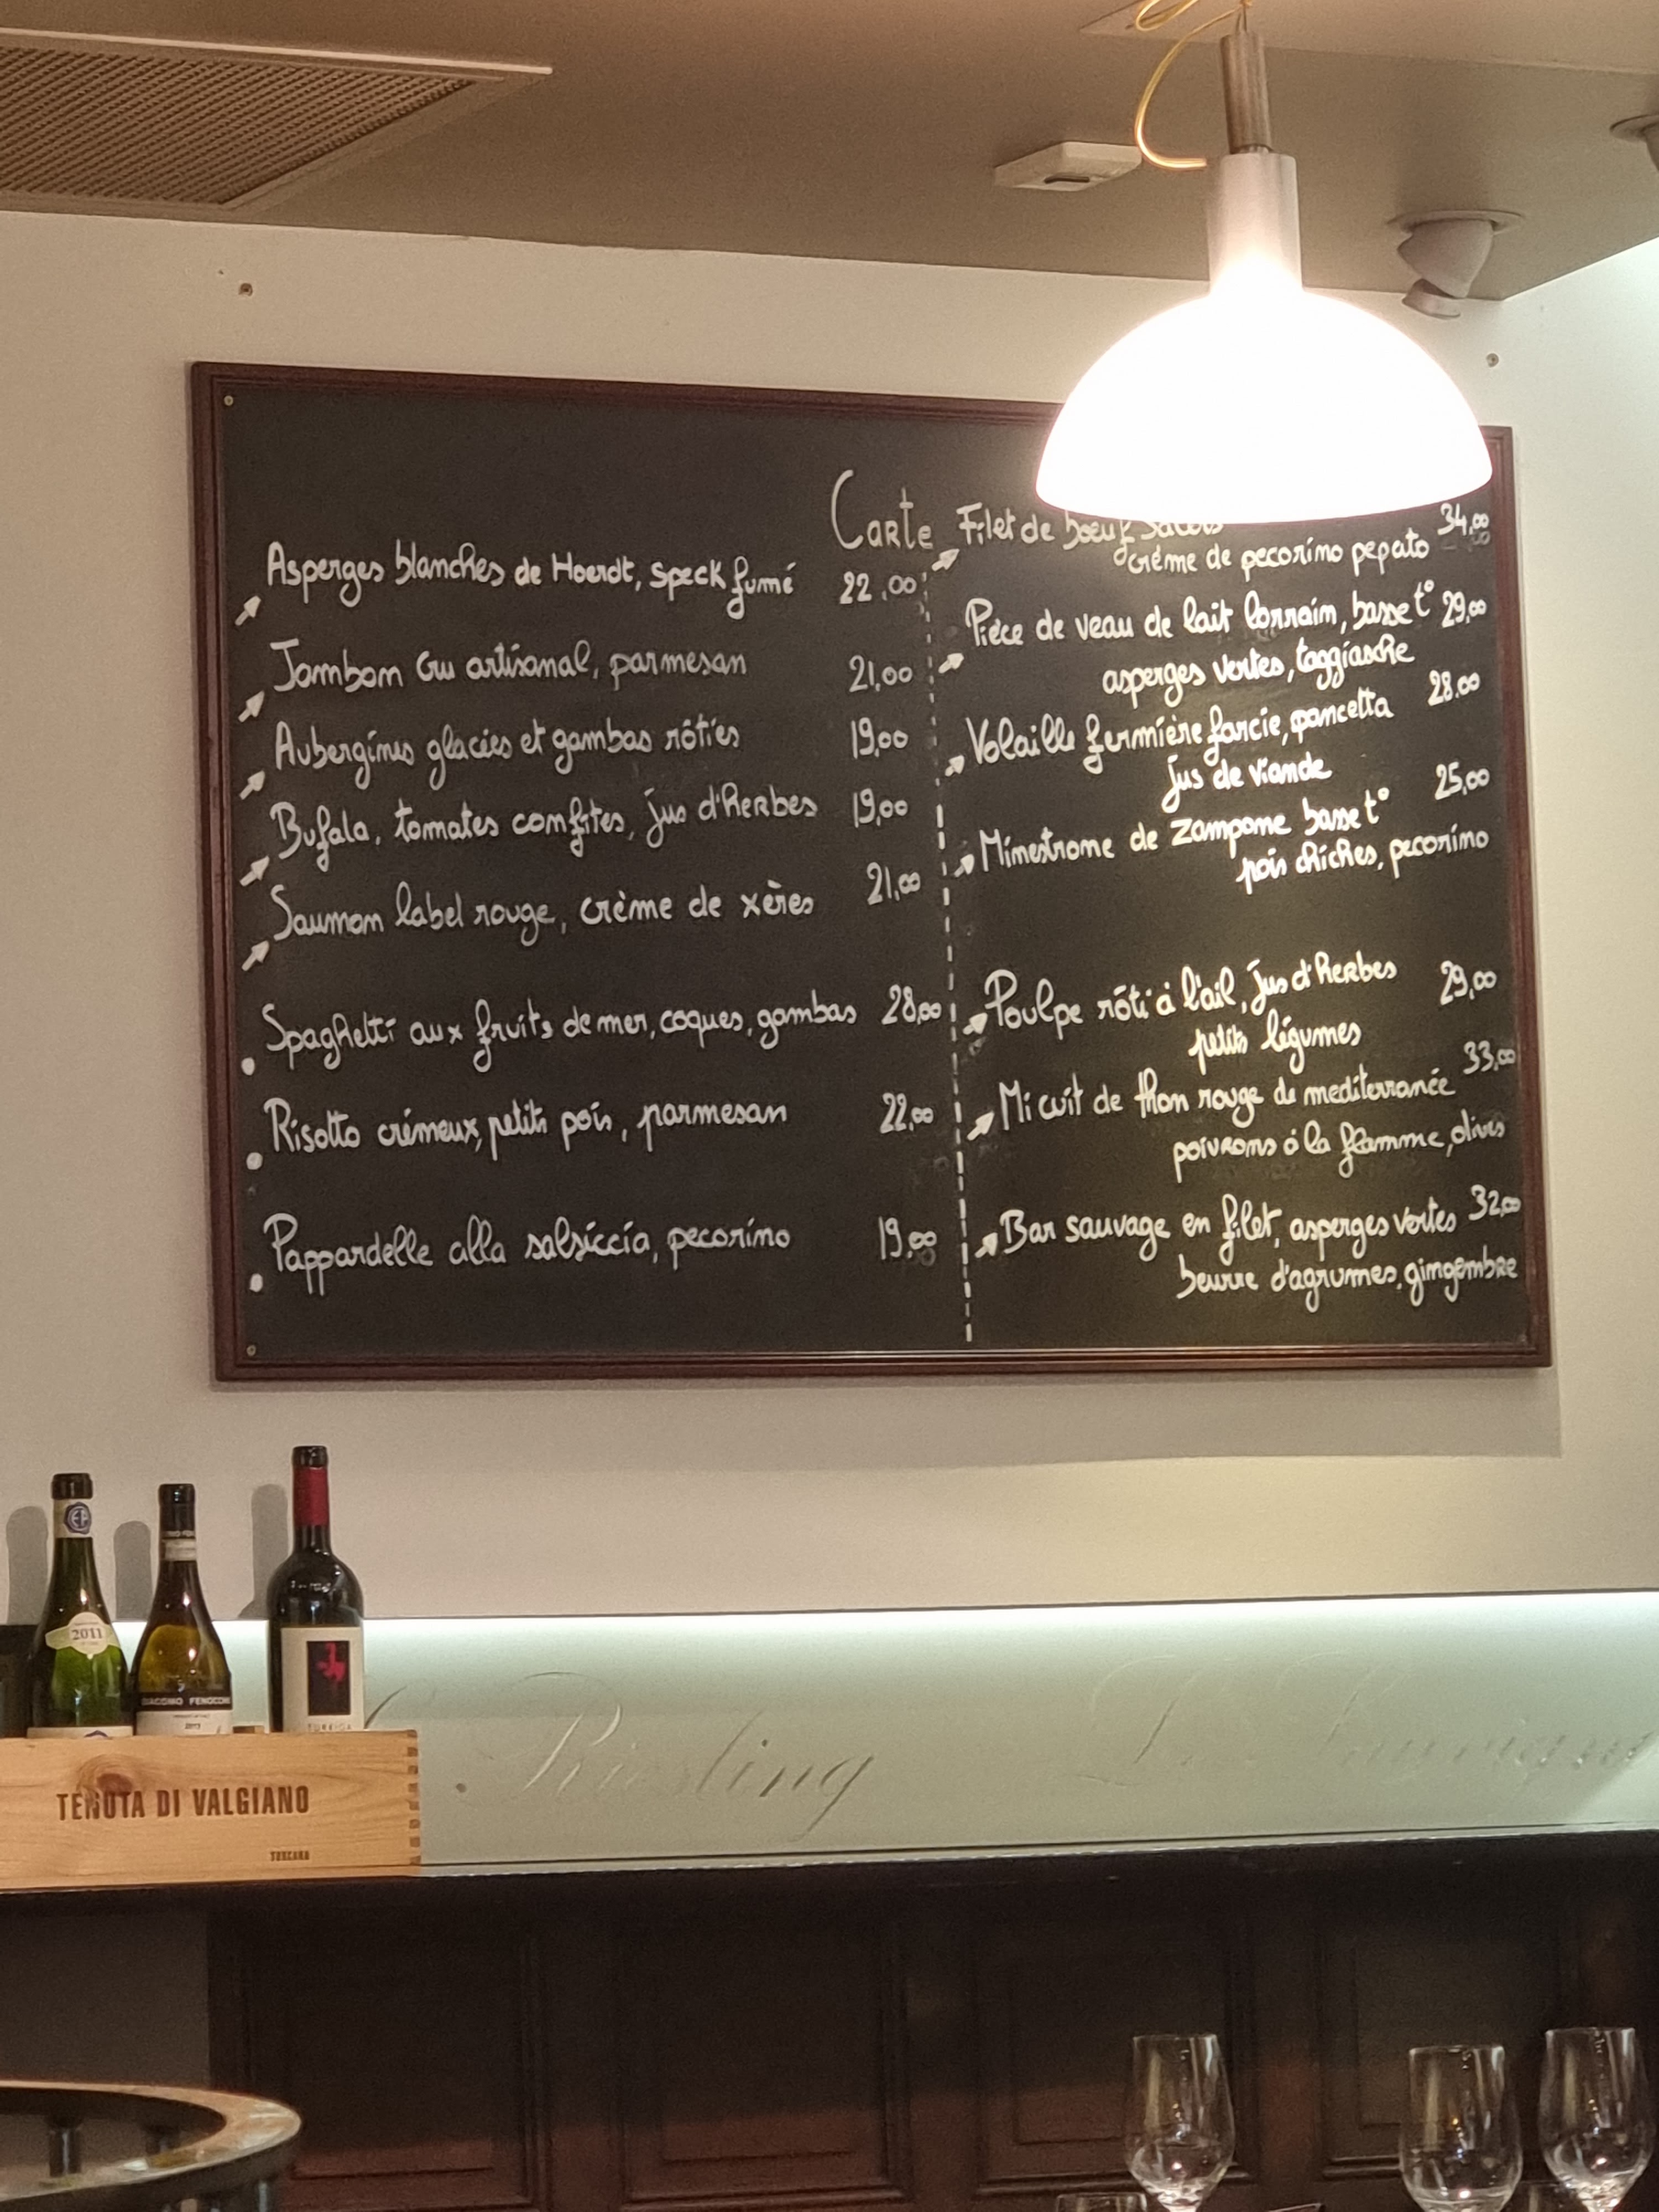 Carte
Asperges blanches de Hoerdt, speck fumé 22,00
Jambon cru artisanal, parmesan 21,00
Aubergines glacées et gambas rôties 19,00
Bufala, tomates confites, jus d'herbes 19,00
Saumon label rouge, crème de xères 21,00
Spaghetti aux fruits de mer, coques, gambas 28,00
Risotto crémeux, petits pois, parmesan 22,00
Pappardelle alla salsiccia, pecorino 19,00
Filet de boeuf 34,00
crème de pecorino pepato
Pièce de veau de lait lorrain, basse t° 29,00
asperges vertes, taggiasche
Volaille fermière farcie, pancetta 28.00
jus de viande
Minestrone de zampone basse t° 25,00
pois chiches, pecorino
Poulpe rôti à l'ail, jus d'herbes 29,00
petits légumes
Mi cuit de thon rouge de mediterranée 33,00
poivrons à la flamme, olives
Bar sauvage en filet, asperges vertes 32,00
beurre d'agrumes, gingembre
2011
GIACOMO FENOCCHIO
2013
TURRIGA
TENUTA DI VALGIANO
TOSCANA
Riesling
Le